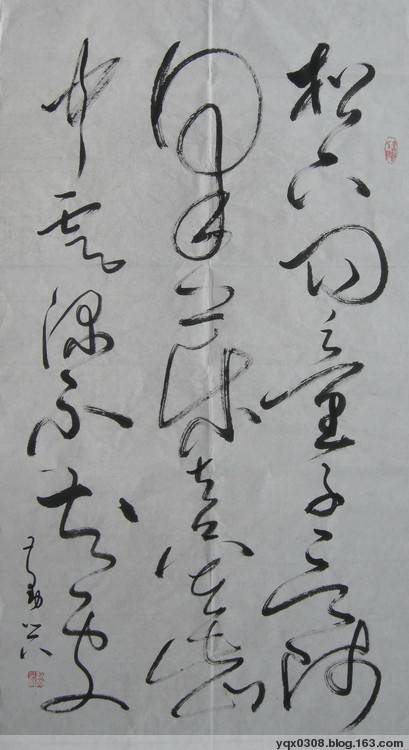 松下問童子言師
採藥去只在此山
中雲深不知處
yqx0308.blog.163.com